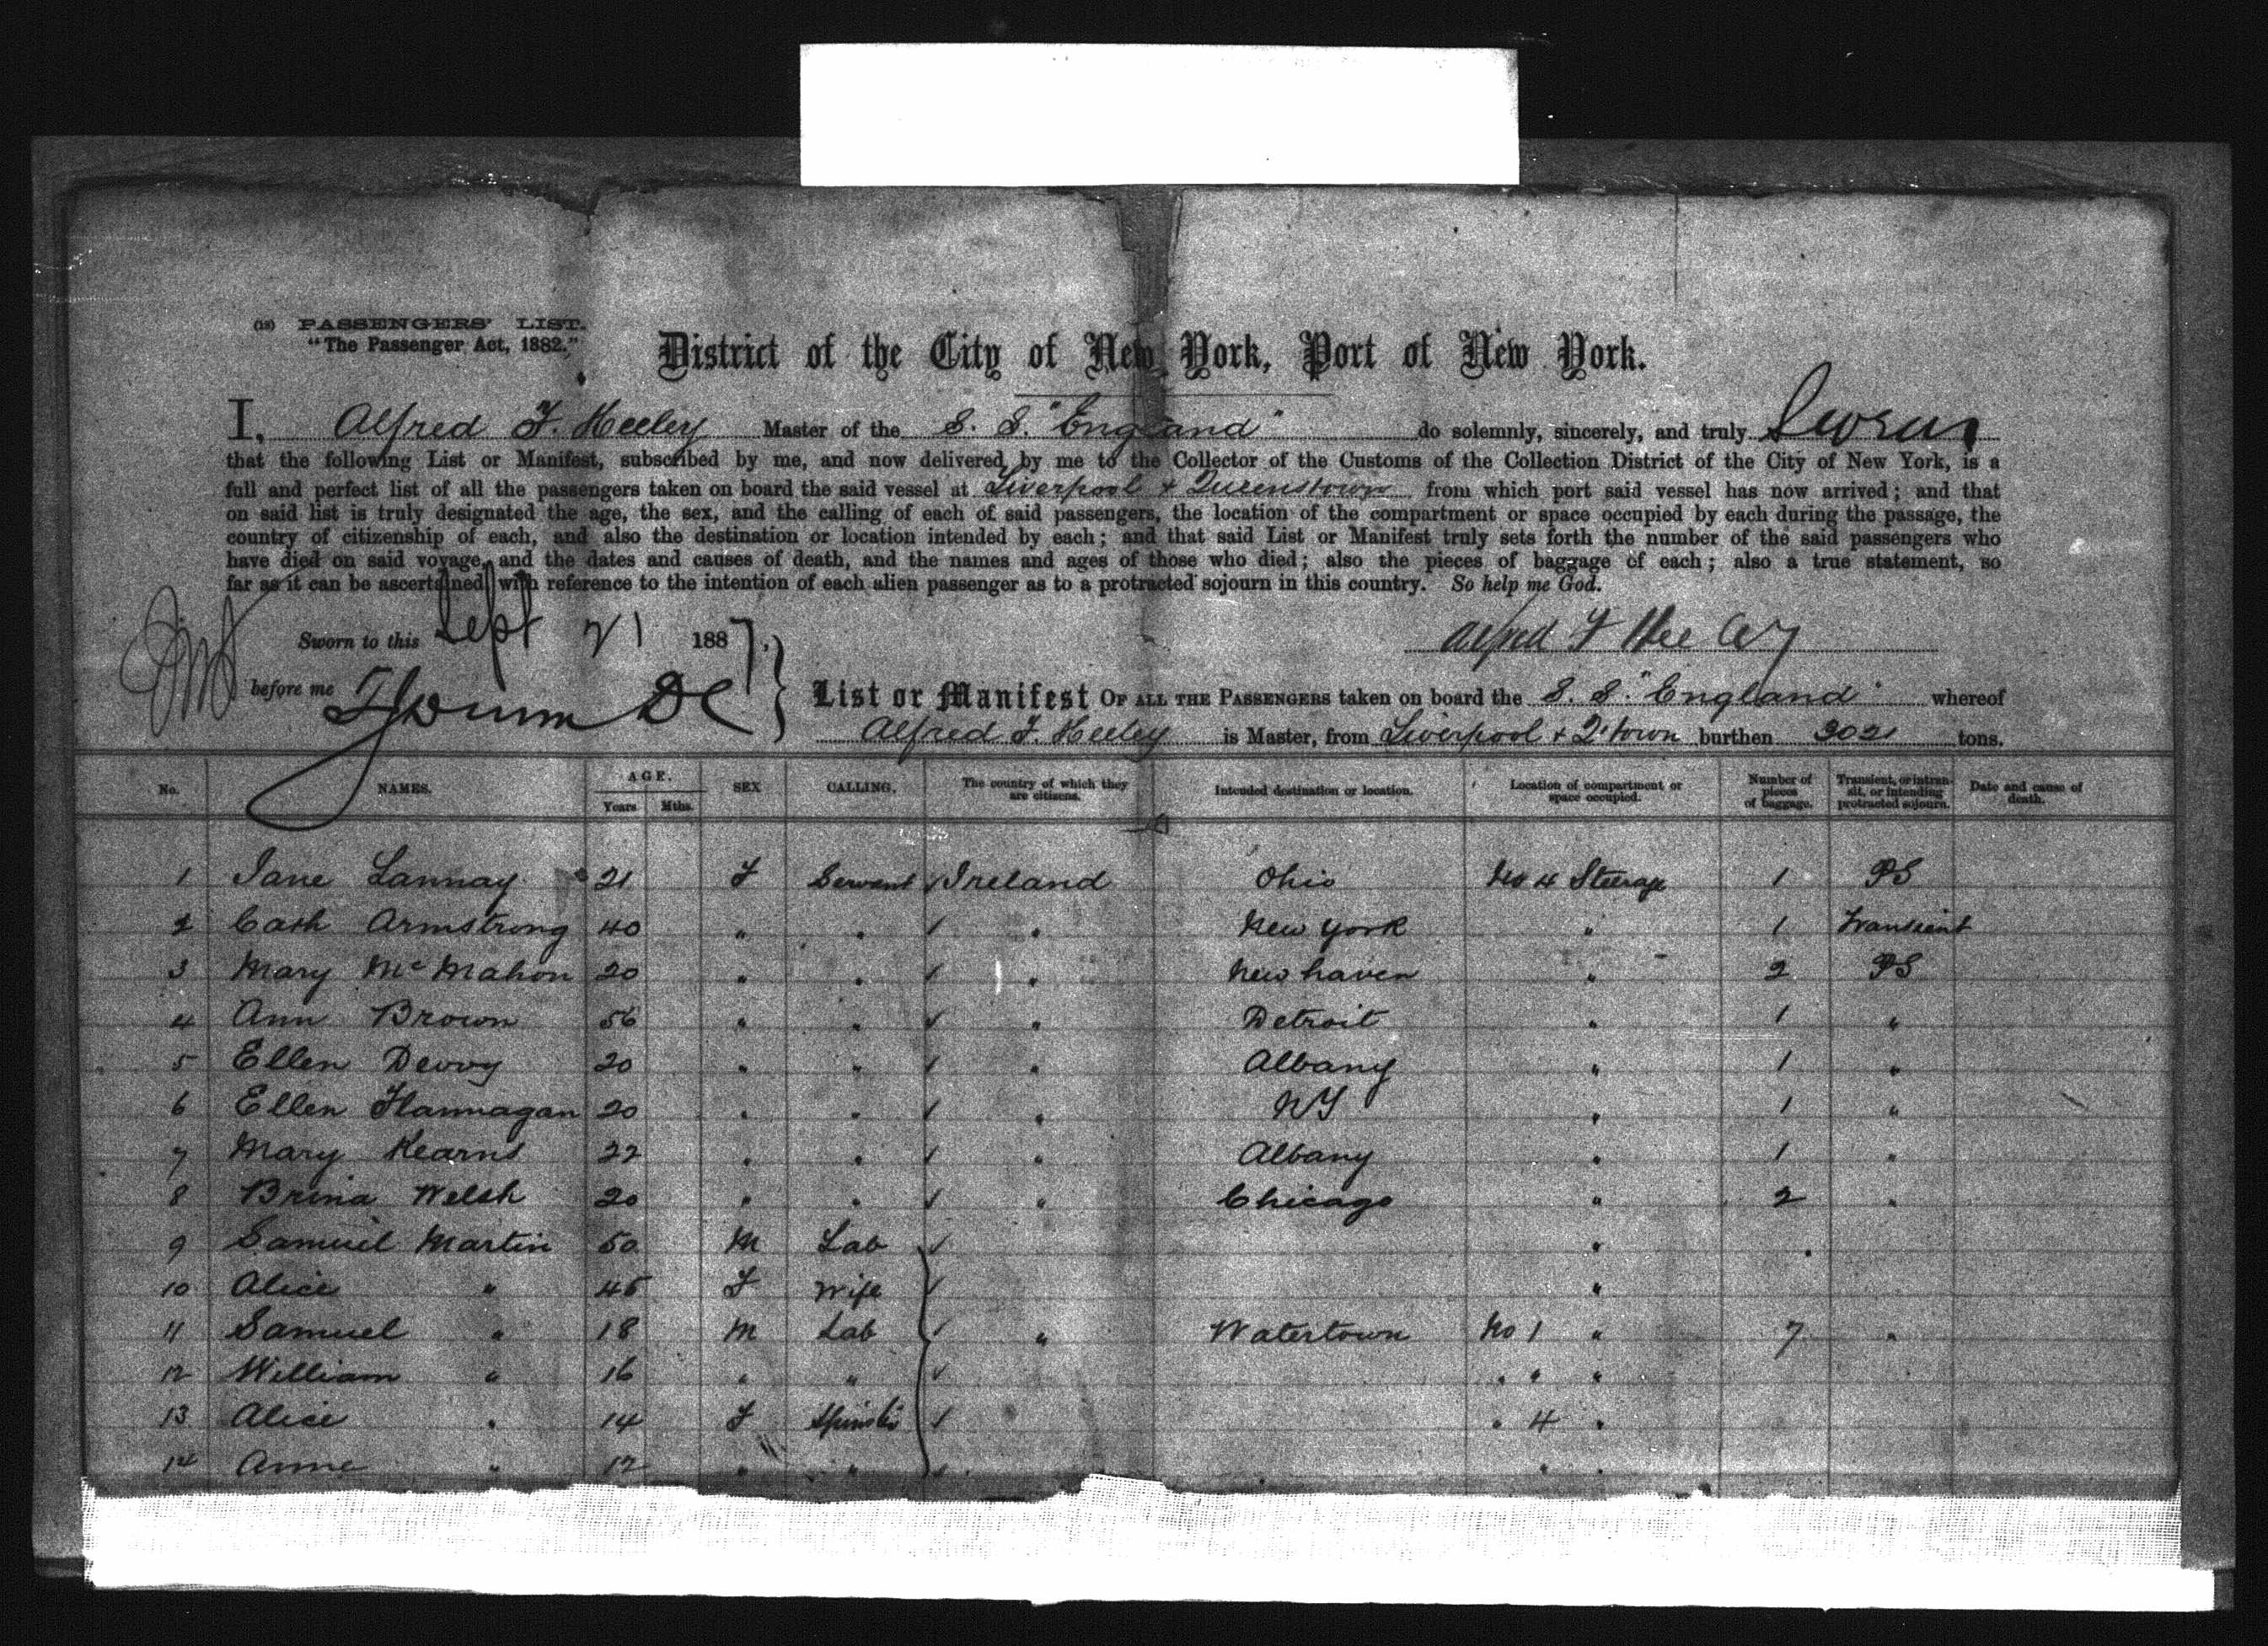 (18) PASSENGERS' LIST.
"The Passenger Act, 1882."
District of the City of New York, Port of New York.
I, Alfred F. Heeley Master of the S. S. "England" do solemnly, sincerely, and truly Swear
that the following List or Manifest, subscribed by me, and now delivered by me to the Collector of the Customs of the Collection District of the City of New York, is a
full and perfect list of all the passengers taken on board the said vessel at Liverpool & Queenstown from which port said vessel has now arrived; and that
on said list is truly designated the age, the sex, and the calling of each of said passengers, the location of the compartment or space occupied by each during the passage, the
country of citizenship of each, and also the destination or location intended by each; and that said List or Manifest truly sets forth the number of the said passengers who
have died on said voyage, and the dates and causes of death, and the names and ages of those who died; also the pieces of baggage of each; also a true statement, so
far as it can be ascertained, with reference to the intention of each alien passenger as to a protracted sojourn in this country. So help me God.
Sworn to this Sept 21 1887, Alfred F Heeley
before me
List or Manifest OF ALL THE PASSENGERS taken on board the S. S. "England" whereof
Alfred F. Heeley is Master, from Liverpool & Q'town burthen 3021 tons.
No. NAMES. AGE. Years Mths. SEX CALLING. The country of which they are citizens. Intended destination or location. Location of compartment or space occupied. Number of pieces of baggage. Transient, or intransit, or intending protracted sojourn. Date and cause of death.
1 Jane Lannay 21 F Servant Ireland Ohio No 4 Steerage 1 PS
2 Cath Armstrong 40 " " " New York " 1 Transient
3 Mary McMahon 20 " " " New haven " 2 PS
4 Ann Brown 56 " " " Detroit " 1 "
5 Ellen Devoy 20 " " " Albany " 1 "
6 Ellen Flannagan 20 " " " NY " 1 "
7 Mary Kearns 22 " " " Albany " 1 "
8 Brina Welsh 20 " " " Chicago " 2 "
9 Samuel Martin 50 M Lab "
10 Alice " 45 F Wife "
11 Samuel " 18 M Lab " Watertown No 1 " 7 "
12 William " 16 " " " " "
13 Alice " 14 F Spinster " 4 "
14 Anne " 12 " " " "